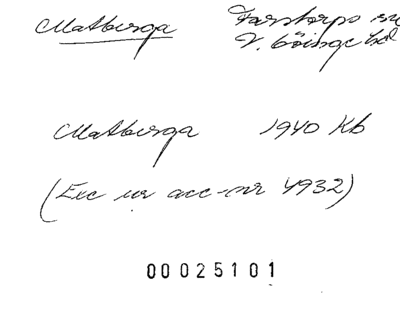 Matberga Farstorps sn
V. Göinge hd
Matberga 1940 Kb
(Exc ur acc-nr 4932)
00025101